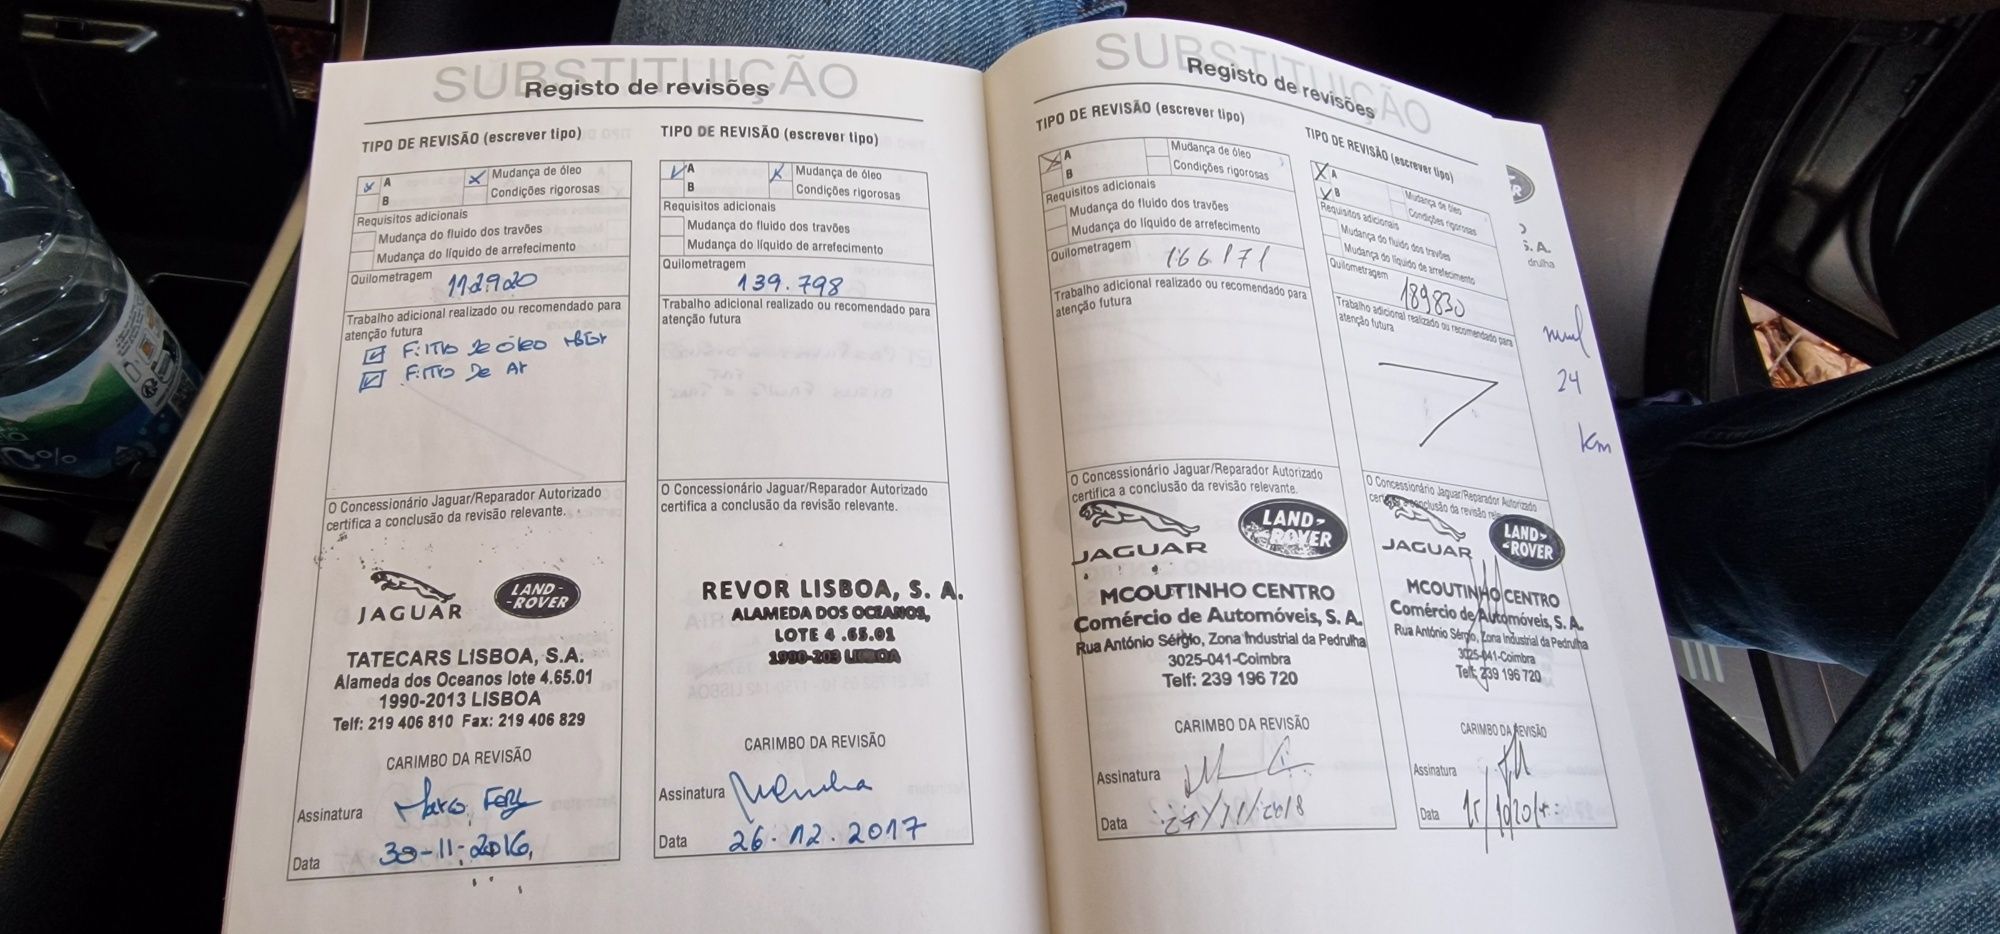 SUBSTITUIÇÃO
Registo de revisões
TIPO DE REVISÃO (escrever tipo)
A
B
Mudança de óleo
Condições rigorosas
Requisitos adicionais
Mudança do fluido dos travões
Mudança do líquido de arrefecimento
Quilometragem
112.920
Trabalho adicional realizado ou recomendado para
atenção futura
Filtro de óleo motor
Filtro de Ar
O Concessionário Jaguar/Reparador Autorizado
certifica a conclusão da revisão relevante.
JAGUAR
LAND-
-ROVER
TATECARS LISBOA, S.A.
Alameda dos Oceanos lote 4.65.01
1990-2013 LISBOA
Telf: 219 406 810 Fax: 219 406 829
CARIMBO DA REVISÃO
Assinatura
Data
30-11-2016
TIPO DE REVISÃO (escrever tipo)
A
B
Mudança de óleo
Condições rigorosas
Requisitos adicionais
Mudança do fluido dos travões
Mudança do líquido de arrefecimento
Quilometragem
139.798
Trabalho adicional realizado ou recomendado para
atenção futura
O Concessionário Jaguar/Reparador Autorizado
certifica a conclusão da revisão relevante.
REVOR LISBOA, S. A.
ALAMEDA DOS OCEANOS,
LOTE 4 .65.01
1990-203 LISBOA
CARIMBO DA REVISÃO
Assinatura
Data
26.12.2017
SUBSTITUIÇÃO
Registo de revisões
TIPO DE REVISÃO (escrever tipo)
A
B
Mudança de óleo
Condições rigorosas
Requisitos adicionais
Mudança do fluido dos travões
Mudança do líquido de arrefecimento
Quilometragem
166171
Trabalho adicional realizado ou recomendado para
atenção futura
O Concessionário Jaguar/Reparador Autorizado
certifica a conclusão da revisão relevante.
JAGUAR
LAND-
-ROVER
MCOUTINHO CENTRO
Comércio de Automóveis, S. A.
Rua António Sérgio, Zona Industrial da Pedrulha
3025-041-Coimbra
Telf: 239 196 720
CARIMBO DA REVISÃO
Assinatura
Data
TIPO DE REVISÃO (escrever tipo)
A
B
Mudança de óleo
Condições rigorosas
Requisitos adicionais
Mudança do fluido dos travões
Mudança do líquido de arrefecimento
Quilometragem
189830
Trabalho adicional realizado ou recomendado para
atenção futura
O Concessionário Jaguar/Reparador Autorizado
certifica a conclusão da revisão
JAGUAR
LAND-
-ROVER
MCOUTINHO CENTRO
Comércio de Automóveis, S. A.
Rua António Sérgio, Zona Industrial da Pedrulha
3025-041-Coimbra
Telf: 239 196 720
CARIMBO DA REVISÃO
Assinatura
Data
S. A.
drulha
24
km